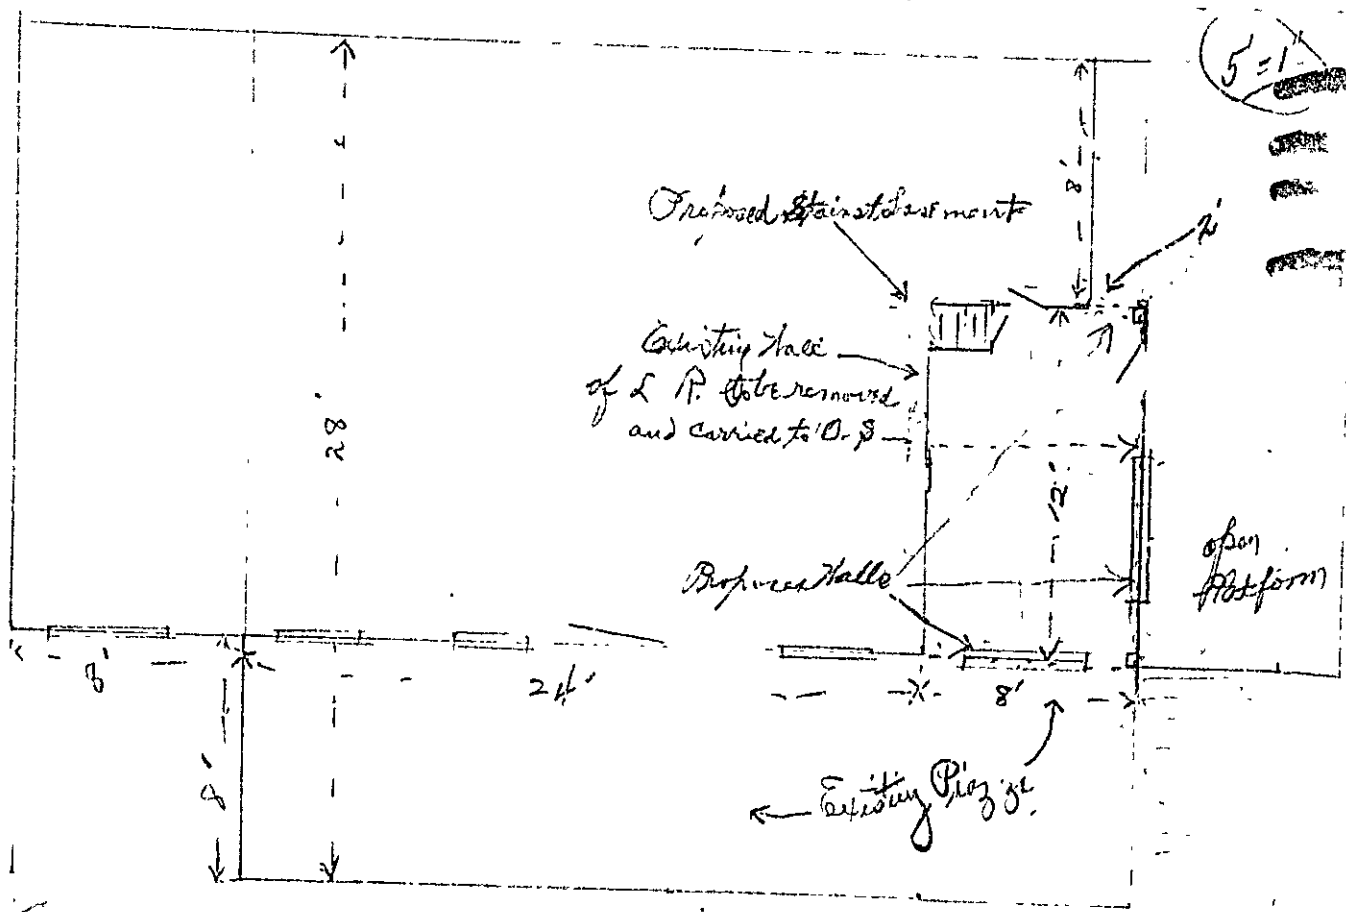 5'=1"
28'
8'
2'
Proposed Stairs to Basement
Existing Wall
of L R. to be removed
and carried to O.S
12'
Proposed Walls
open
Platform
8'
24'
8'
8'
Existing Piazza